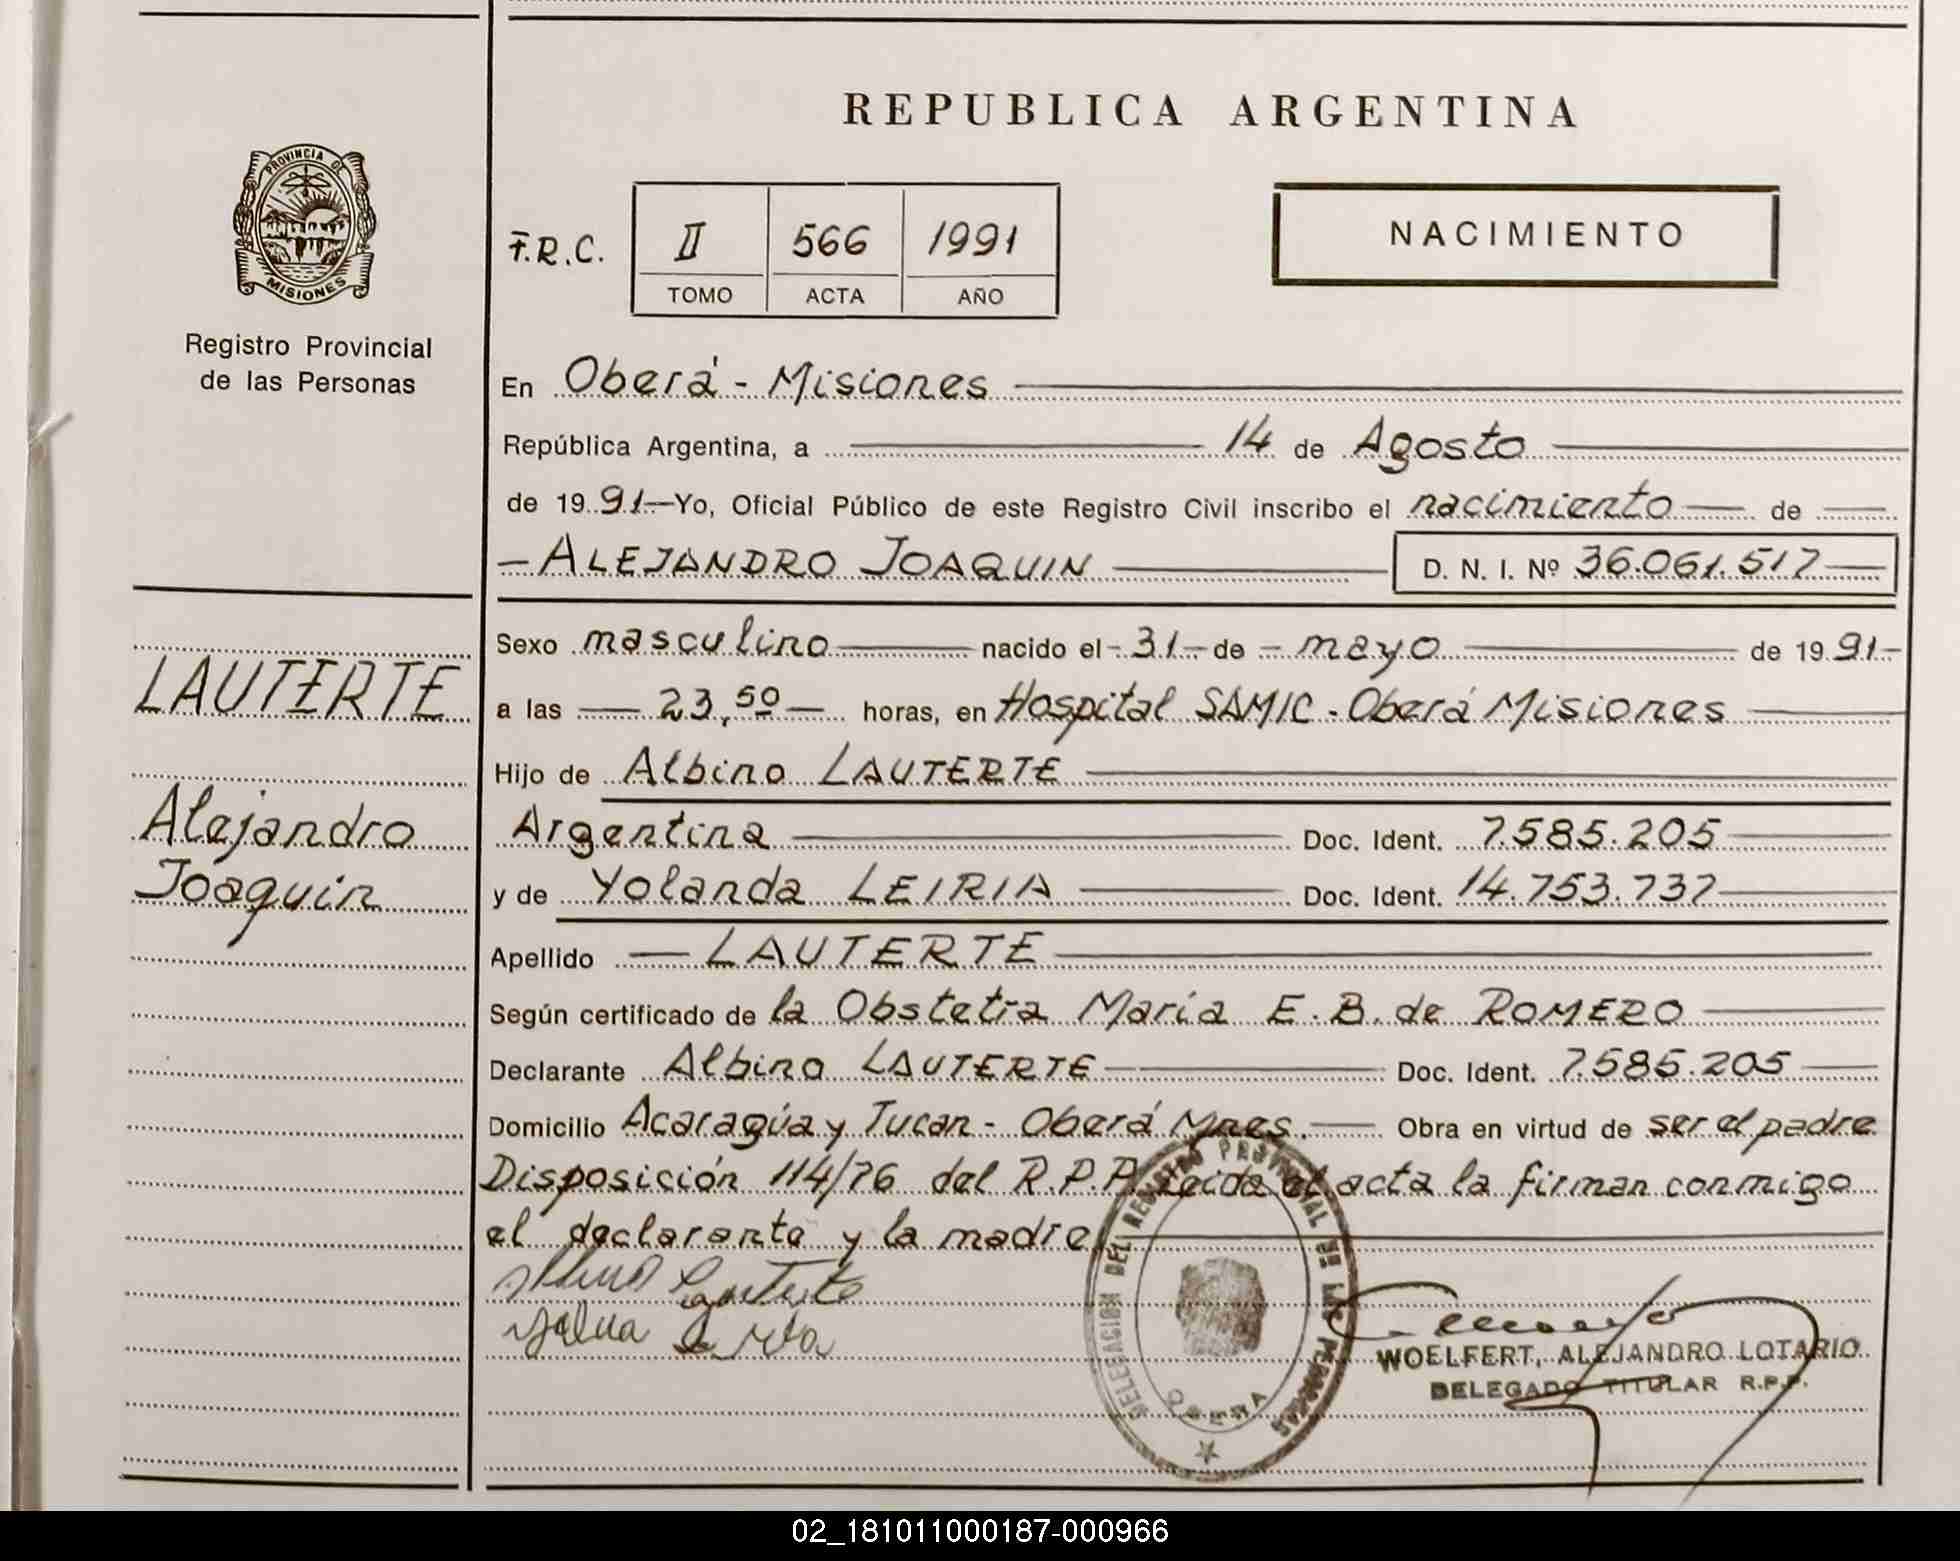 REPUBLICA ARGENTINA
PROVINCIA DE
MISIONES
Registro Provincial
de las Personas
F.R.C. II 566 1991
TOMO ACTA AÑO
NACIMIENTO
En Oberá - Misiones
República Argentina, a 14 de Agosto
de 1991 Yo, Oficial Público de este Registro Civil inscribo el nacimiento de
ALEJANDRO JOAQUIN D. N. I. Nº 36.061.517
LAUTERTE
Alejandro
Joaquin
Sexo masculino nacido el 31 de mayo de 1991
a las 23,50 horas, en Hospital SAMIC - Oberá Misiones
Hijo de Albino LAUTERTE
Argentina Doc. Ident. 7.585.205
y de Yolanda LEIRIA Doc. Ident. 14.753.737
Apellido LAUTERTE
Según certificado de la Obstetra Maria E. B. de ROMERO
Declarante Albino LAUTERTE Doc. Ident. 7.585.205
Domicilio Acaragúa y Tucan - Oberá Mnes. Obra en virtud de ser el padre
Disposición 114/76 del R.P.P. Leida el acta la firman conmigo
el declarante y la madre
DELEGACION DEL REGISTRO PROVINCIAL DE LAS PERSONAS
OBERA
WOELFERT, ALEJANDRO LOTARIO
DELEGADO TITULAR R.P.P.
02_181011000187-000966